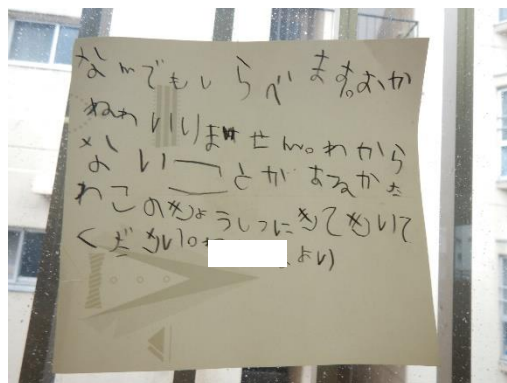 なんでもしらべます。おか
ねわいりません。わから
ないことがあるかた
わこのきょうしつにきてきいて
ください。
より